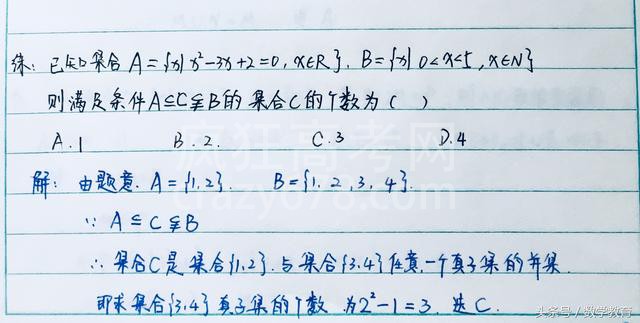 练: 已知集合 A={x|x²-3x+2=0, x∈R}. B={x|0<x<5, x∈N}
则满足条件A⊆C⫋B的集合C的个数为( )
A.1 B.2. C.3 D.4
解: 由题意. A={1,2}. B={1.2,3,4}.
∵ A⊆C⫋B
∴ 集合C是集合{1,2}.与集合{3.4}任意一个真子集的并集.
即求集合{3,4}真子集的个数 为2²-1=3. 选C.
疯狂高考网
crazygk8.com
头条号/数学教育